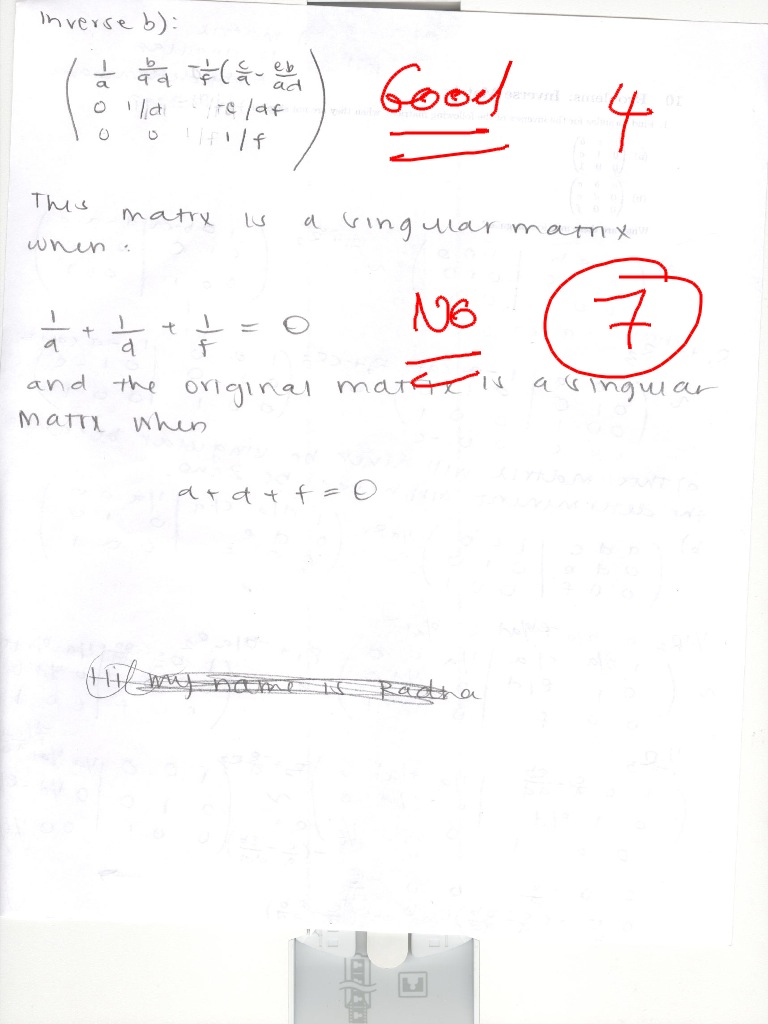 Inverse b):
1/a b/ad -1/f(c/a - eb/ad
0 1/d -e/df
0 0 1/f
Good 4
This matrix is a singular matrix
when:
1/a + 1/d + 1/f = 0
No 7
and the original matrix is a singular
matrx when
a + d + f = 0
Hi! my name is Radha